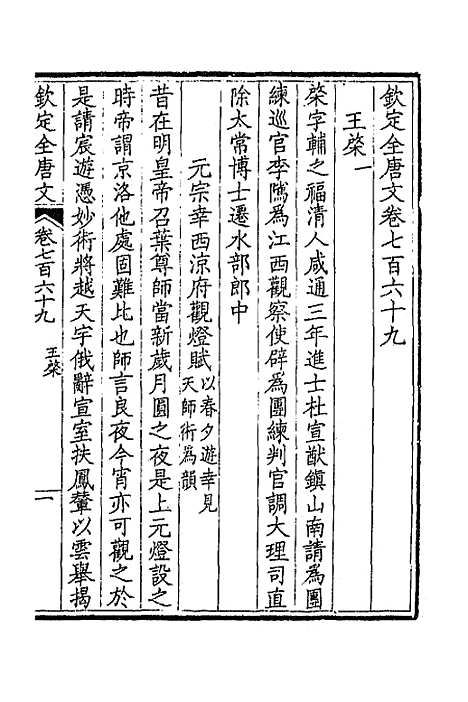 欽定全唐文卷七百六十九
王棨一
棨字輔之福清人咸通三年進士杜宣猷鎮山南請為團
練巡官李隲為江西觀察使辟為團練判官調大理司直
除太常博士遷水部郎中
元宗幸西涼府觀燈賦以春夕遊幸見
天師術為韻
昔在明皇帝召葉尊師當新歲月圓之夜是上元燈設之
時帝謂京洛他處固難比也師言良夜今宵亦可觀之於
是請宸遊憑妙術將越天宇俄辭宣室扶鳳輦以雲舉揭
欽定全唐文 卷七百六十九 王棨 一